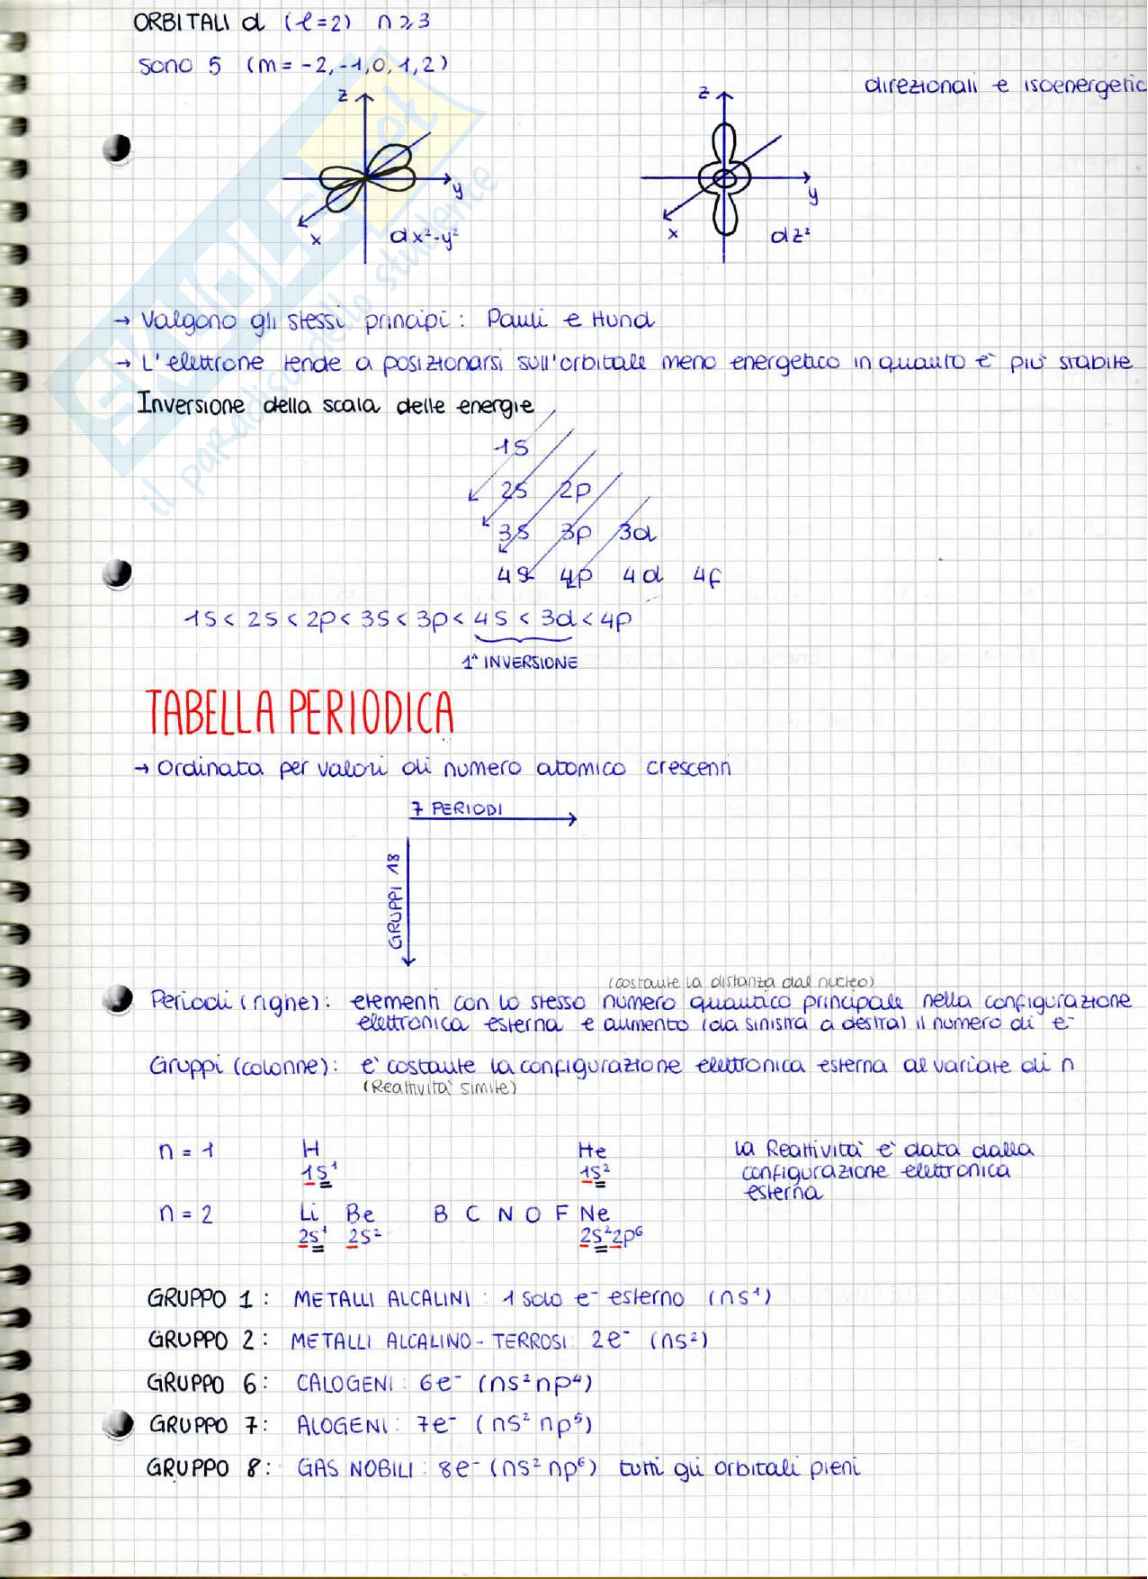 ORBITALI d (ℓ=2) n⩾3
sono 5 (m= -2,-1,0,1,2)
direzionali e isoenergetic
z z
y y
x dx²-y² x dz²
→ Valgono gli stessi principi: Pauli e Hund
→ L'elettrone tende a posizionarsi sull'orbitale meno energetico in quanto è più stabile
Inversione della scala delle energie
1s
2s 2p
3s 3p 3d
4s 4p 4d 4f
1s < 2s < 2p < 3s < 3p < 4s < 3d < 4p
1ᴬ INVERSIONE
TABELLA PERIODICA
→ Ordinata per valori di numero atomico crescenti
7 PERIODI
GRUPPI 18
(costante la distanza dal nucleo)
Periodi (righe): elementi con lo stesso numero quantico principale nella configurazione
elettronica esterna e aumento (da sinistra a destra) il numero di e⁻
Gruppi (colonne): è costante la configurazione elettronica esterna al variare di n
(Reattività simile)
n = 1 H He La Reattività è data dalla
1s¹ 1s² configurazione elettronica
esterna
n = 2 Li Be B C N O F Ne
2s¹ 2s² 2s²2p⁶
GRUPPO 1: METALLI ALCALINI: 1 solo e⁻ esterno (ns¹)
GRUPPO 2: METALLI ALCALINO-TERROSI: 2e⁻ (ns²)
GRUPPO 6: CALOGENI: 6e⁻ (ns²np⁴)
GRUPPO 7: ALOGENI: 7e⁻ (ns² np⁵)
GRUPPO 8: GAS NOBILI: 8e⁻ (ns² np⁶) tutti gli orbitali pieni
SKUOLA.net
il paradiso dello studente